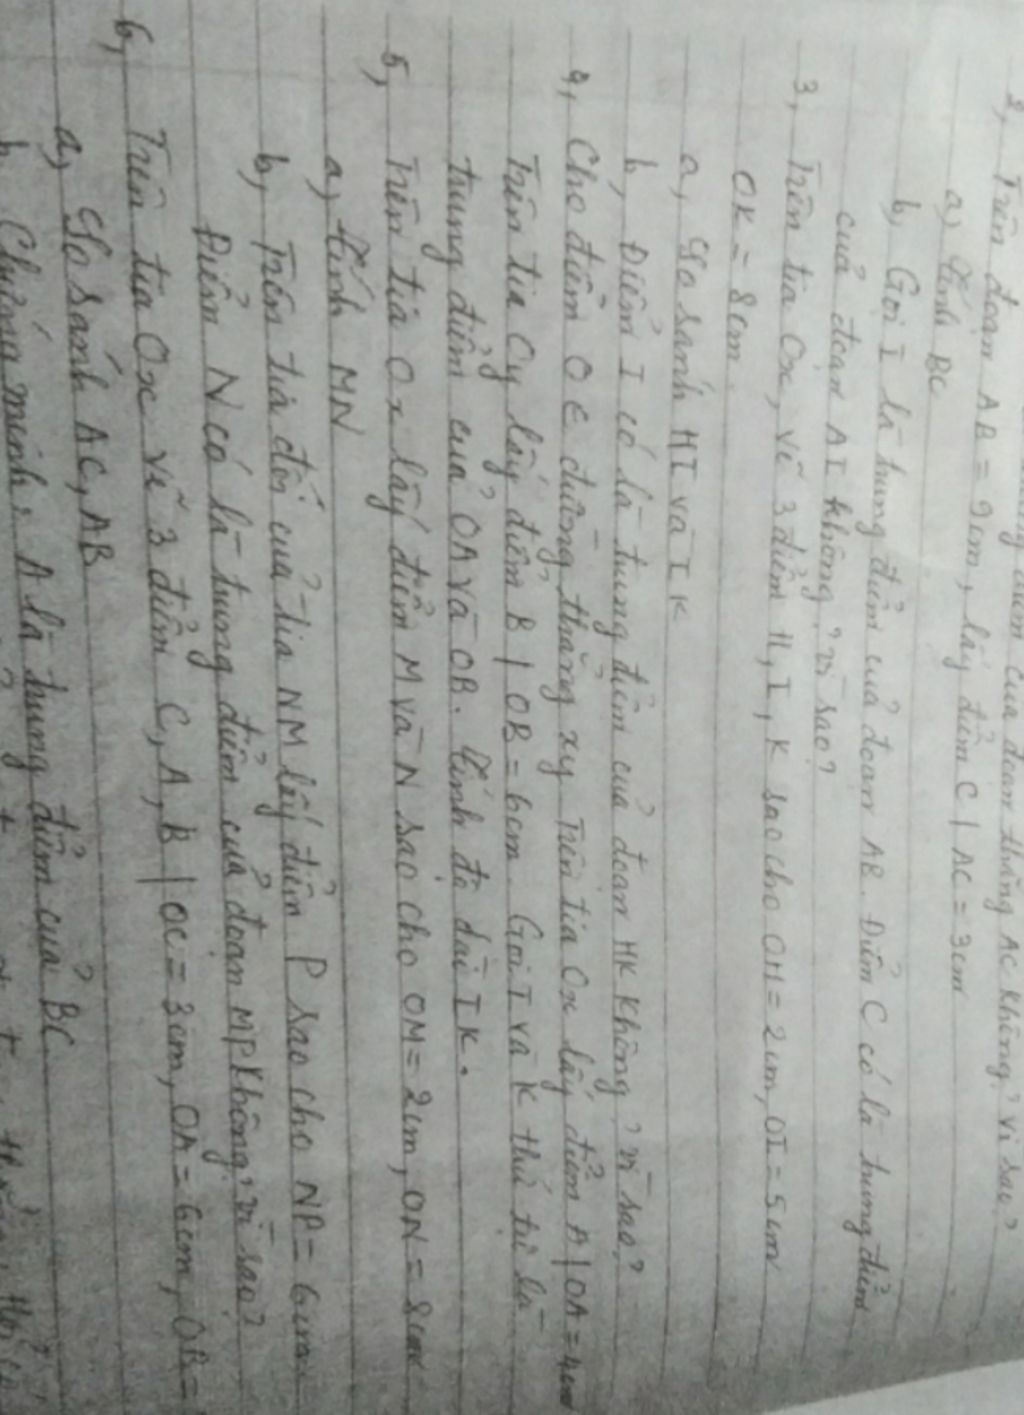 của đoạn thẳng AC không? Vì sao?
2, Trên đoạn AB = 9cm, lấy điểm C | AC = 3cm
a) Tính BC
b, Gọi I là trung điểm của đoạn AB. Điểm C có là trung điểm
của đoạn AI không? Vì sao?
3, Trên tia Ox, vẽ 3 điểm H, I, K sao cho OH = 2cm, OI = 5cm
OK = 8cm.
a, So sánh HI và IK
b, Điểm I có là trung điểm của đoạn HK không? Vì sao?
4, Cho điểm O ∈ đường thẳng xy Trên tia Ox lấy điểm A | OA = 4cm
Trên tia Oy lấy điểm B | OB = 6cm. Gọi I và K thứ tự là
trung điểm của OA và OB. Tính độ dài IK.
5, Trên tia Ox lấy điểm M và N sao cho OM = 2cm, ON = 8cm
a, Tính MN
b, Trên tia đối của tia NM lấy điểm P sao cho NP = 6cm
Điểm N có là trung điểm của đoạn MP không? Vì sao?
6, Trên tia Ox vẽ 3 điểm C, A, B | OC = 3cm, OA = 6cm, OB =
a, So sánh AC, AB
b, Chứng minh: A là trung điểm của BC